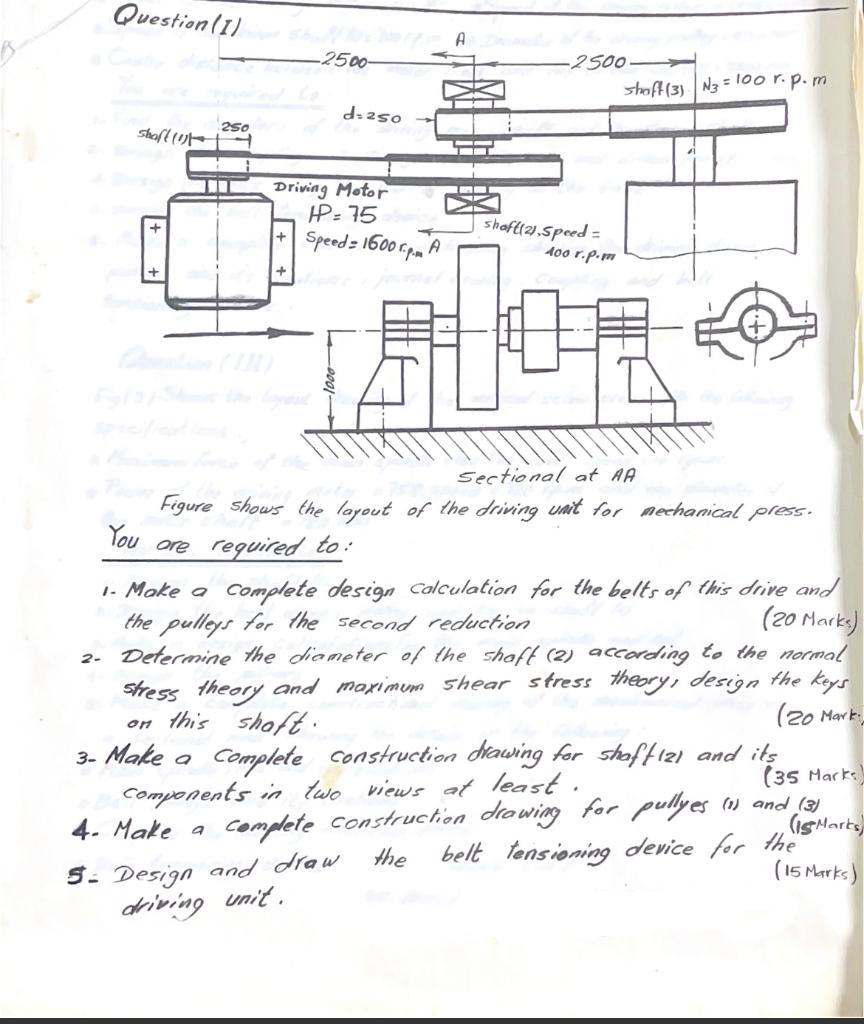 Question (I)
A
2500
2500
shaft (3) N3 = 100 r.p.m
d=250
shaft (1)
250
Driving Motor
HP = 75
Speed = 1600 r.p.m
A
shaft (2), Speed =
400 r.p.m
1000
Sectional at AA
Figure shows the layout of the driving unit for mechanical press.
You are required to:
1- Make a complete design calculation for the belts of this drive and
the pulleys for the second reduction (20 Marks)
2- Determine the diameter of the shaft (2) according to the normal
stress theory and maximum shear stress theory, design the keys
on this shaft. (20 Mark
3- Make a Complete construction drawing for shaft (2) and its
components in two views at least. (35 Marks)
4- Make a complete construction drawing for pullyes (1) and (3)
(15 Marks)
5- Design and draw the belt tensioning device for the
driving unit. (15 Marks)